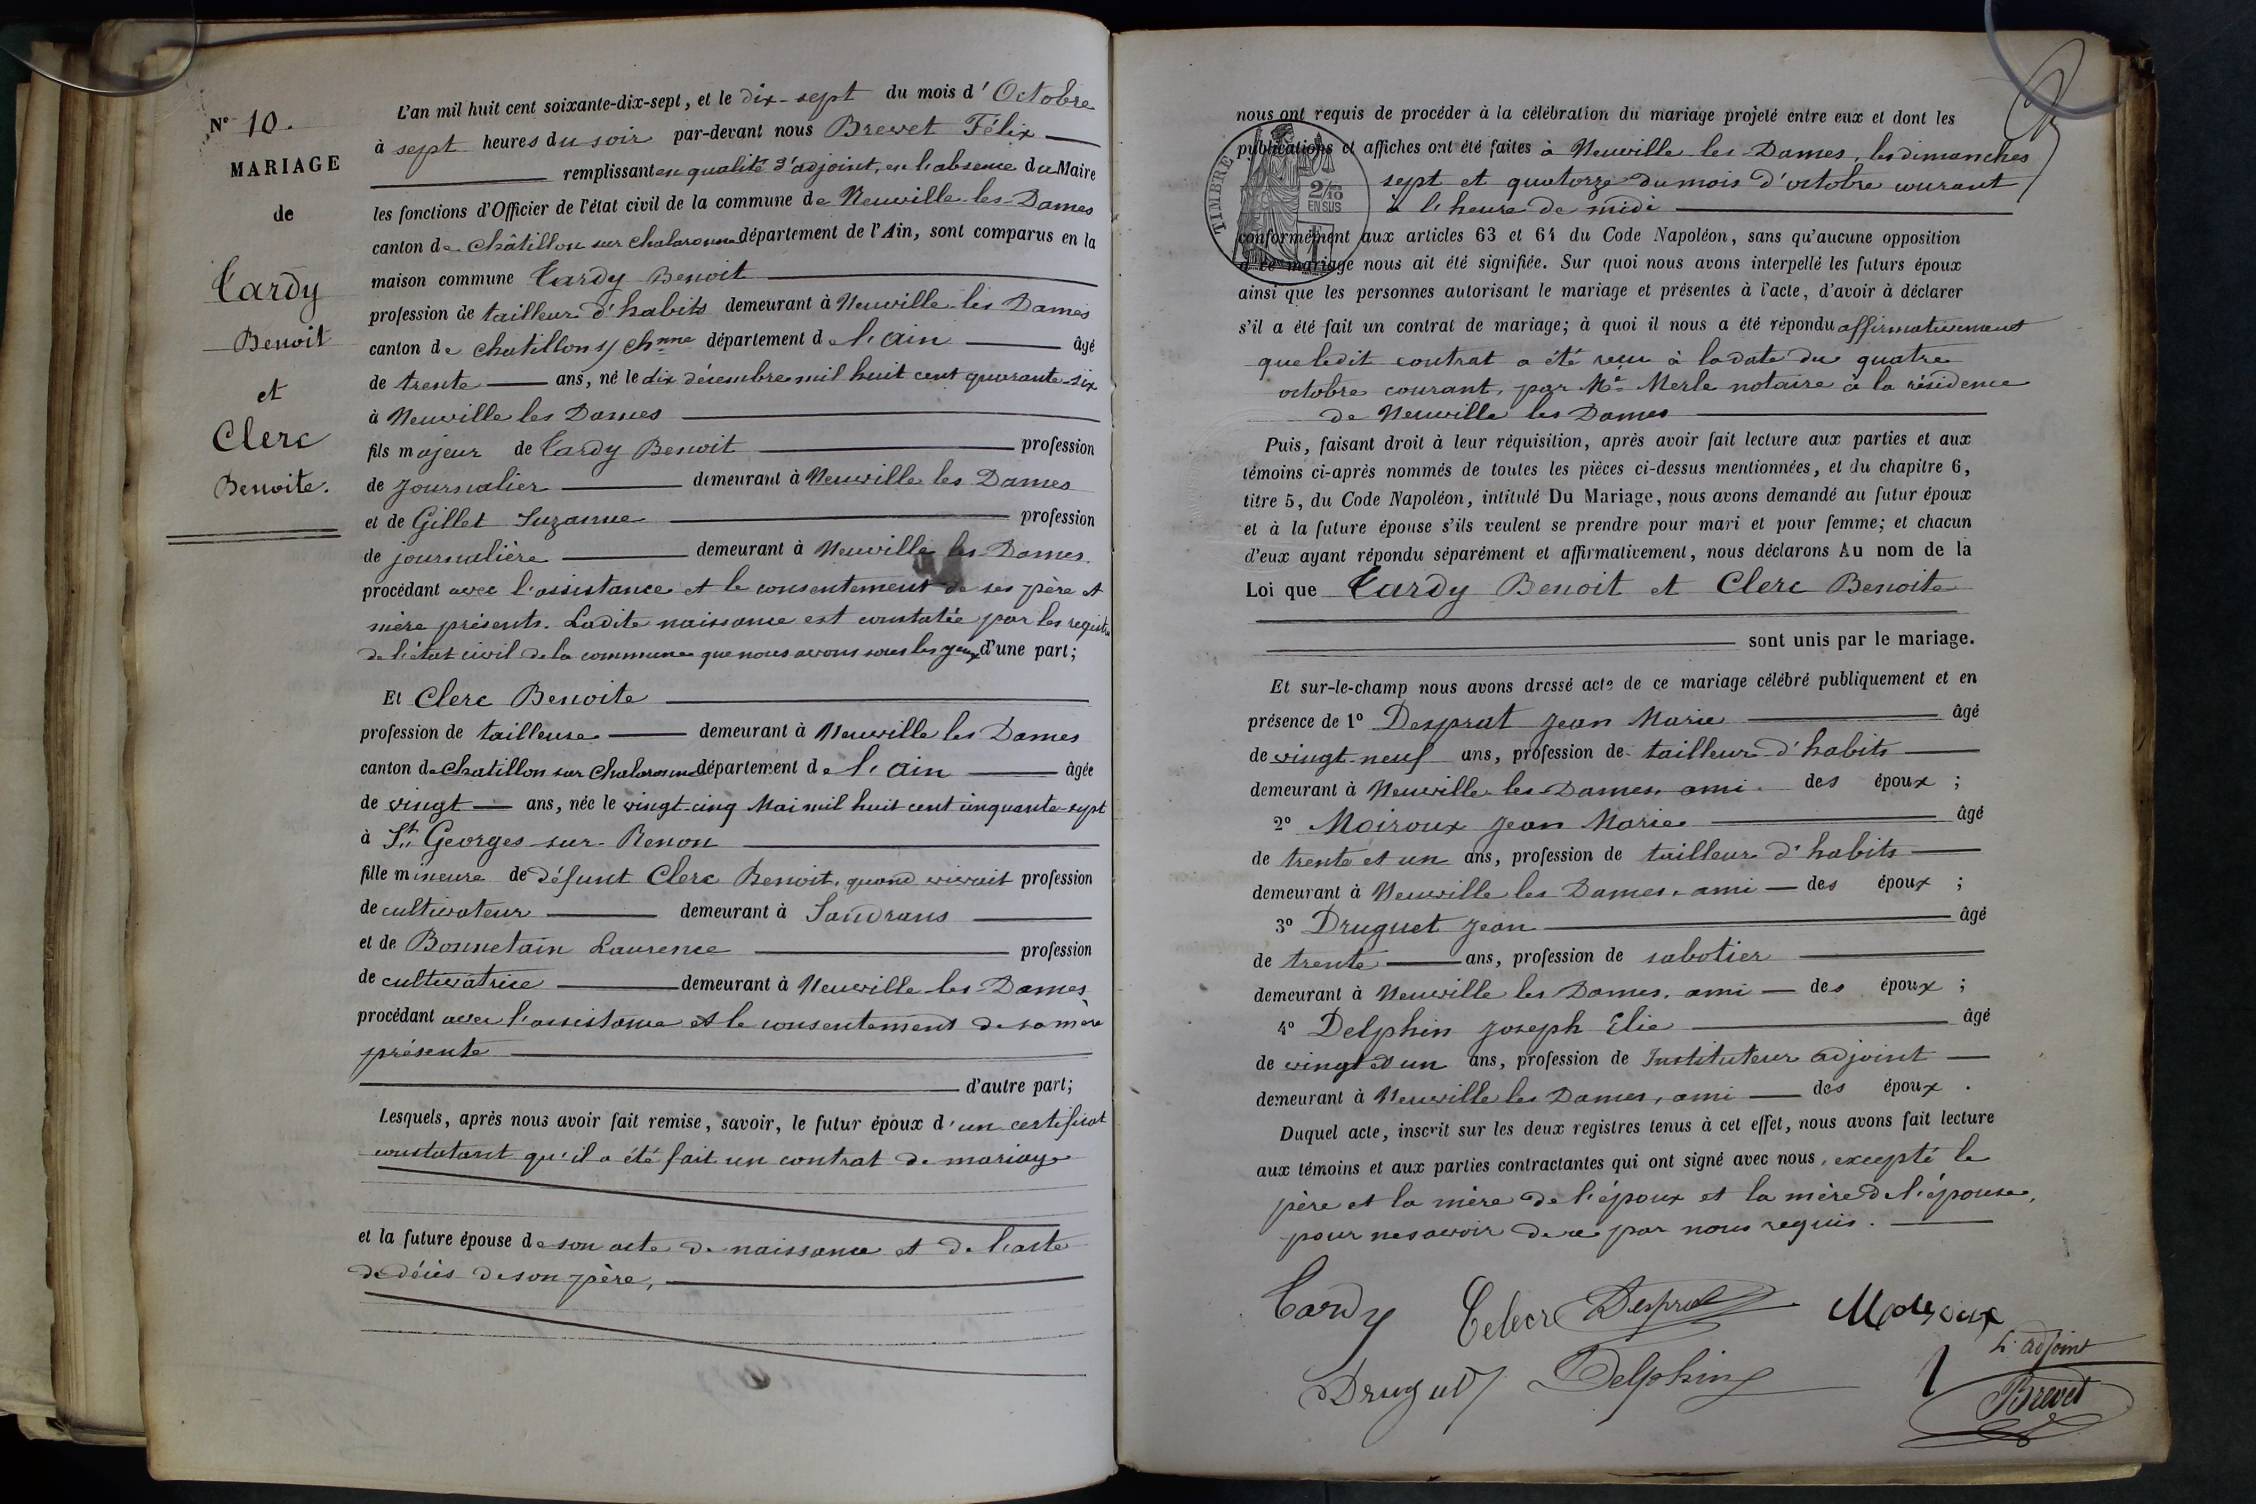 N° 10.
MARIAGE
de
Tardy
Benoit
et
Clerc
Benoite.
L'an mil huit cent soixante-dix-sept, et le dix-sept du mois d'Octobre
à sept heures du soir par-devant nous Brevet Félix
remplissant en qualité d'adjoint, en l'absence du Maire
les fonctions d'Officier de l'état civil de la commune de Neuville-les-Dames
canton de Châtillon sur Chalaronne département de l'Ain, sont comparus en la
maison commune Tardy Benoit
profession de tailleur d'habits demeurant à Neuville les Dames
canton de Chatillon s/ Chnne département de l'Ain âgé
de trente ans, né le dix décembre mil huit cent quarante-six
à Neuville les Dames
fils majeur de Tardy Benoit profession
de journalier demeurant à Neuville les Dames
et de Gillet Suzanne profession
de journalière demeurant à Neuville les Dames.
procédant avec l'assistance et le consentement de ses père et
mère présents. Ladite naissance est constatée par les registres
de l'état civil de la commune que nous avons sous les yeux d'une part;
Et Clerc Benoite
profession de tailleuse demeurant à Neuville les Dames
canton de Chatillon sur Chalaronne département de l'Ain âgée
de vingt ans, née le vingt-cinq Mai mil huit cent cinquante-sept
à St Georges-sur-Renon
fille mineure de défunt Clerc Benoit, quand vivait profession
de cultivateur demeurant à Sandrans
et de Bonnetain Laurence profession
de cultivatrice demeurant à Neuville-les-Dames,
procédant avec l'assistance et le consentement de sa mère
présente
d'autre part;
Lesquels, après nous avoir fait remise, savoir, le futur époux d'un certificat
constatant qu'il a été fait un contrat de mariage
et la future épouse de son acte de naissance et de l'acte
de décès de son père,
nous ont requis de procéder à la célébration du mariage projeté entre eux et dont les
publications et affiches ont été faites à Neuville les Dames, les dimanches
sept et quatorze du mois d'octobre courant
à l'heure de midi
TIMBRE
2/10
EN SUS
conformément aux articles 63 et 64 du Code Napoléon, sans qu'aucune opposition
à ce mariage nous ait été signifiée. Sur quoi nous avons interpellé les futurs époux
ainsi que les personnes autorisant le mariage et présentes à l'acte, d'avoir à déclarer
s'il a été fait un contrat de mariage; à quoi il nous a été répondu affirmativement
que ledit contrat a été reçu à la date du quatre
octobre courant, par Me Merle notaire à la résidence
de Neuville les Dames
Puis, faisant droit à leur réquisition, après avoir fait lecture aux parties et aux
témoins ci-après nommés de toutes les pièces ci-dessus mentionnées, et du chapitre 6,
titre 5, du Code Napoléon, intitulé Du Mariage, nous avons demandé au futur époux
et à la future épouse s'ils veulent se prendre pour mari et pour femme; et chacun
d'eux ayant répondu séparément et affirmativement, nous déclarons Au nom de la
Loi que Tardy Benoit et Clerc Benoite
sont unis par le mariage.
Et sur-le-champ nous avons dressé acte de ce mariage célébré publiquement et en
présence de 1° Desprat Jean Marie âgé
de vingt-neuf ans, profession de tailleur d'habits
demeurant à Neuville les Dames, ami des époux ;
2° Moiroux Jean Marie âgé
de trente et un ans, profession de tailleur d'habits
demeurant à Neuville les Dames, ami des époux ;
3° Druguet Jean âgé
de trente ans, profession de sabotier
demeurant à Neuville les Dames, ami des époux ;
4° Delphin Joseph Elie âgé
de vingt et un ans, profession de Instituteur adjoint
demeurant à Neuville les Dames, ami des époux .
Duquel acte, inscrit sur les deux registres tenus à cet effet, nous avons fait lecture
aux témoins et aux parties contractantes qui ont signé avec nous, excepté le
père et la mère de l'époux et la mère de l'épouse,
pour ne savoir de ce par nous requis.
Tardy Desprat Moiroux
L'adjoint
Druguet Delphin
Brevet